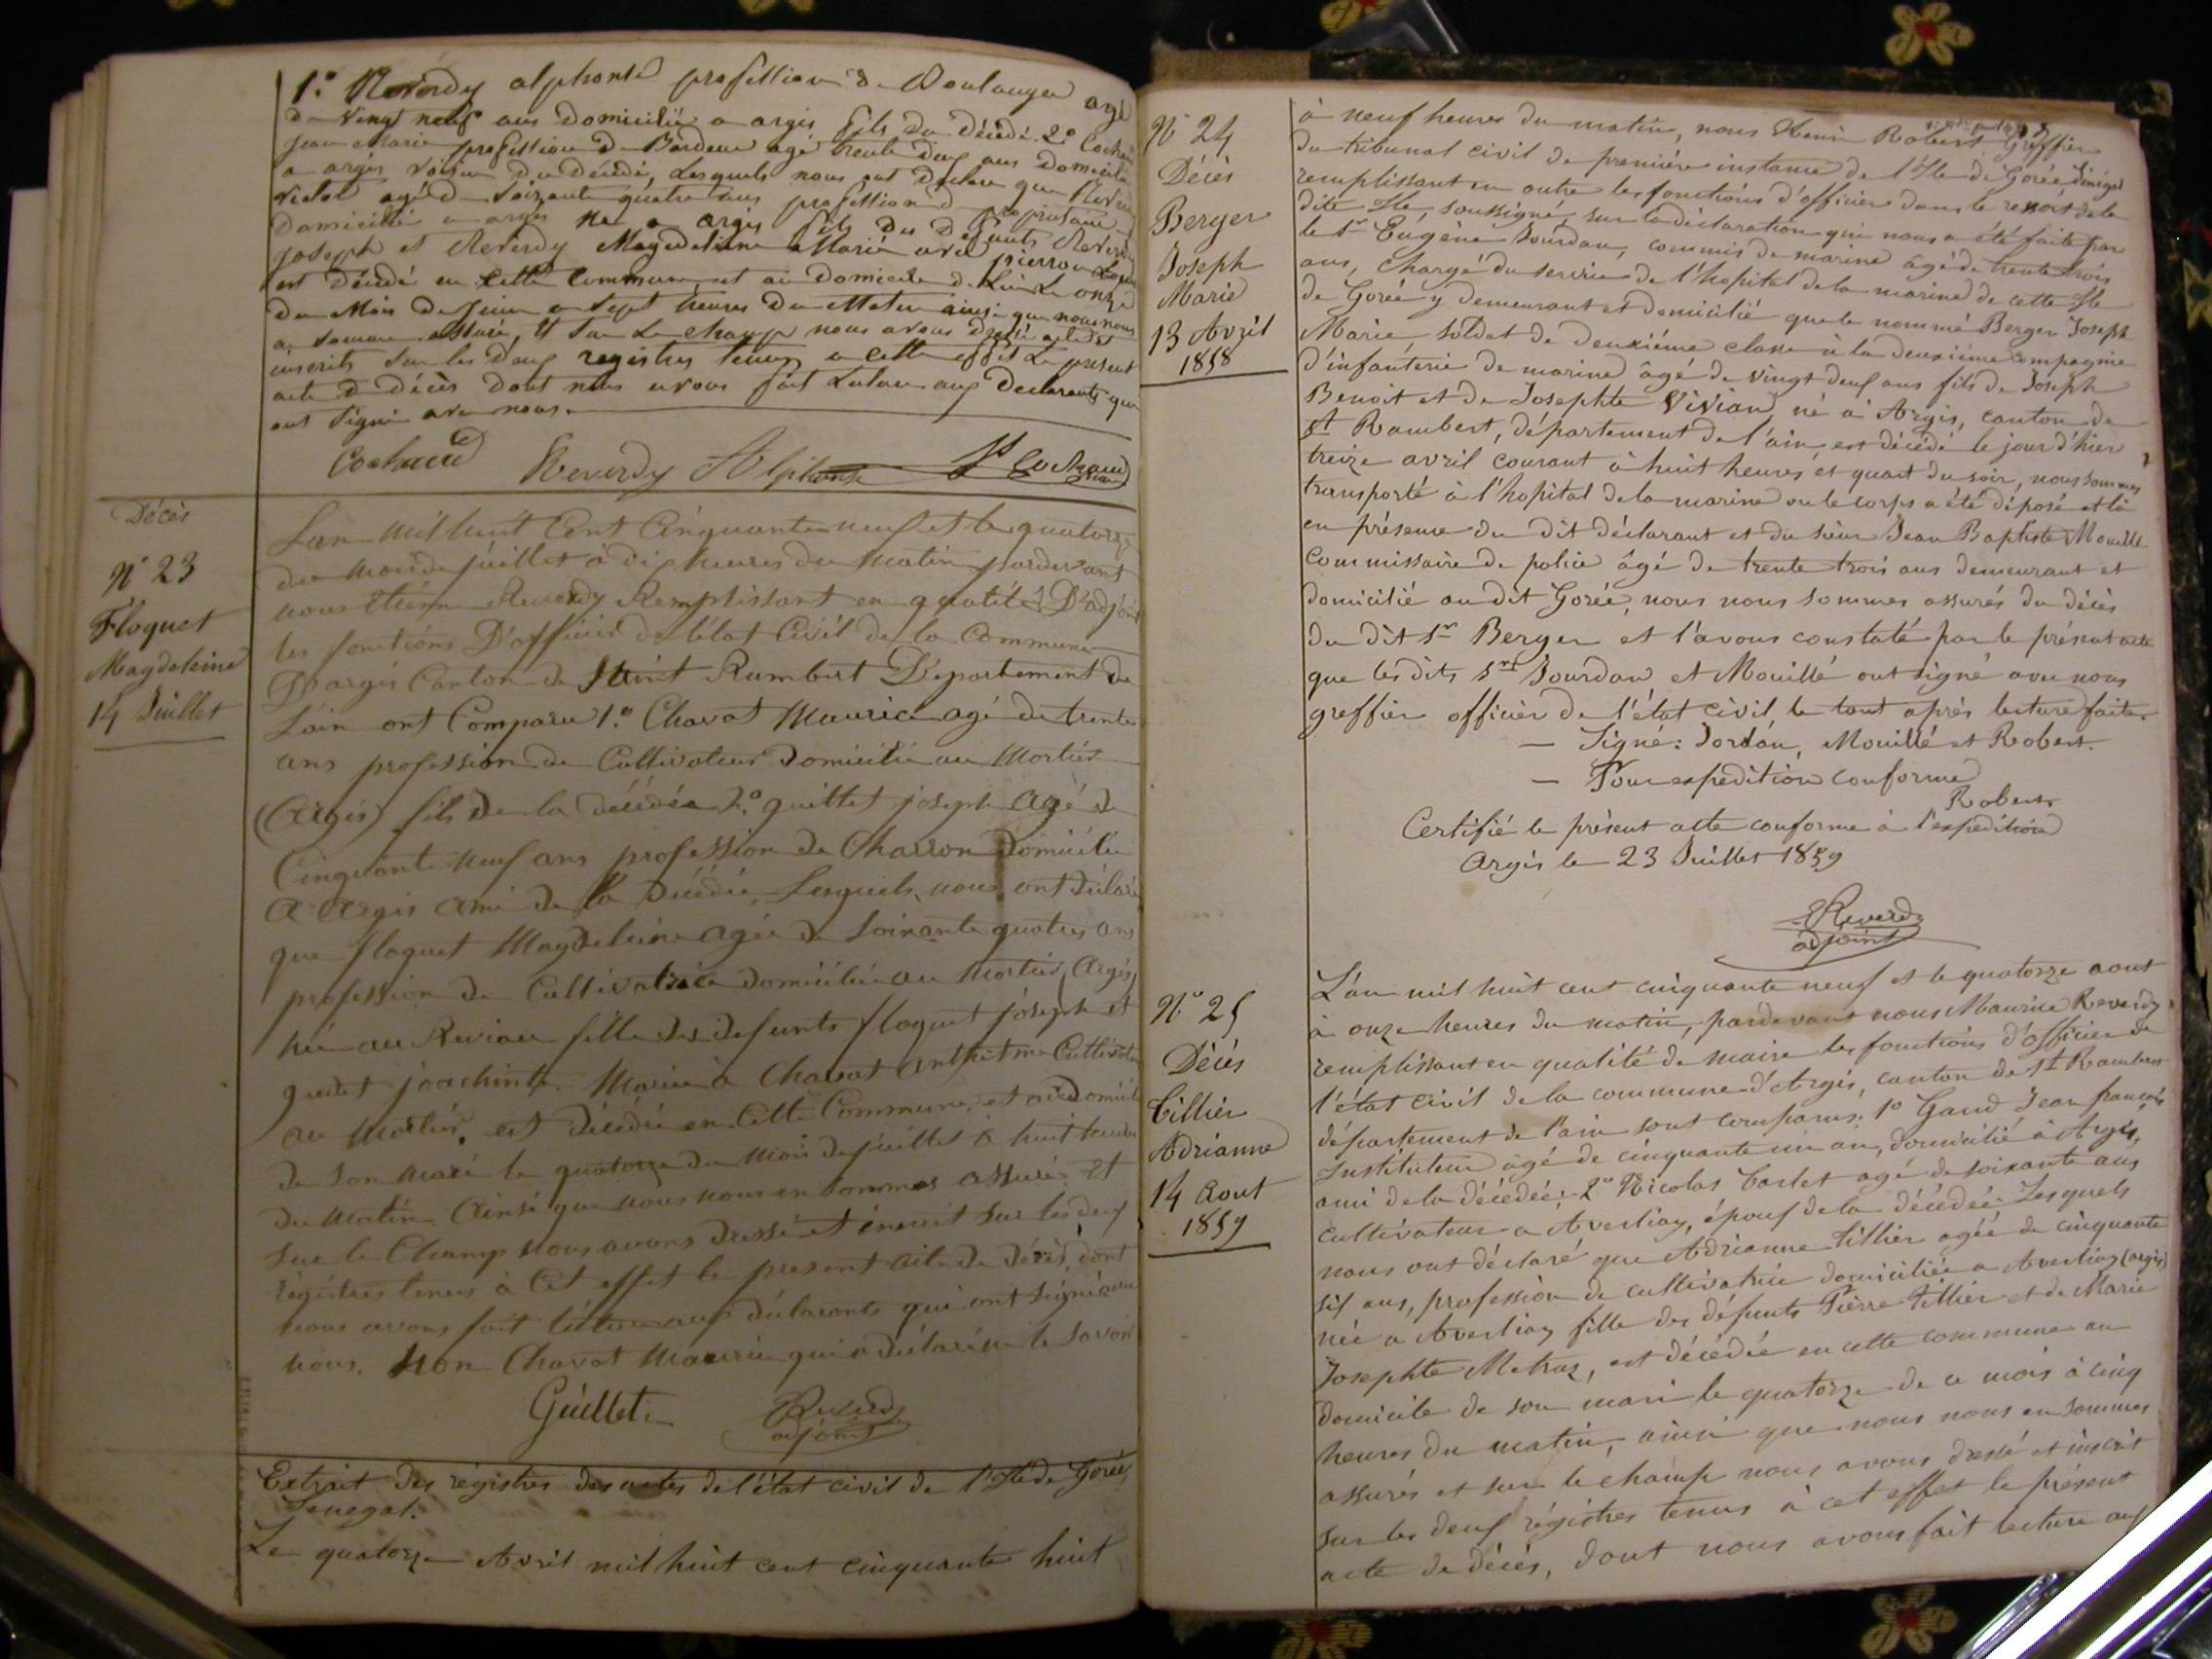 1° Reverdy alphonse profession de Boulanger agé
de vingt neuf ans domicilié a argis fils du décédé. 2° Cochaud
Jean Marie profession de agé trente deux ans domicilié
a argis voisin du décédé, Lesquels nous ont déclaré que Reverdy
agé de soixante quatre ans profession de propriétaire
domicilié a argis né a argis fils des défunts Reverdy
joseph et Reverdy Magdeleine Marié avec pierron
est décédé en cette commune et au domicile de Lui Le onze
du Mois de Juin a sept heures du Matin ainsi que nous nous
en somme assuré, Et sur Le champ nous avons dressé et
inscrits sur les deux registres tenus a cette effet Le present
acte de décès dont nous avons fait Lecture aux Declarants qui
ont signé avec nous.
Cochaud Reverdy Alphonse
Décès
N° 23
Floquet
Magdeleine
14 Juillet
L'an mil huit Cent Cinquante neuf et le quatorze
du mois de juillet à dix heures du matin pardevant
nous Etienne Reverdy Remplissant en qualité D'adjoint
les fonctions D'officier de l'état Civil de la Commune
D'argis Canton de Saint Rambert Département de
L'ain ont Comparu 1.° Chavat Maurice agé de trente
ans profession de Cultivateur domicilié au Mortier
(Argis) fils de la décédée 2.° guillet joseph agé de
Cinquante neuf ans profession de Charron domicilié
a argis ami de la décédée, Lesquels nous ont déclaré
que floquet Magdeleine agée de soixante quatre ans
profession de Cultivatrice domiciliée au Mortier (Argis)
née au fille des defunts floquet joseph et
joachinte. Mariée à Chavat Anthelme Cultivateur
au Mortier, est décédée en cette Commune et au domicile
de son mari le quatorze du mois de juillet à huit heures
du matin Ainsi que nous nous en sommes assuré. Et
sur le Champ nous avons dressé et inscrit sur les deux
régistres tenus à cet effet le present acte de décès, dont
nous avons fait lecture aux déclarants qui ont signé avec
nous. Non Chavat Maurice qui a déclaré ne le savoir
Guillet Reverdy
adjoint
Extrait des régistres des actes de l'état civil de l'Ile de Gorée
Sénégal.
Le quatorze Avril mil huit cent cinquante huit
N° 24
Décès
Berger
Joseph
Marie
13 Avril
1858
à neuf heures du matin, nous Henri Robert, Greffier
du tribunal civil de première instance de l'Ile de Gorée, Sénégal
remplissant en outre les fonctions d'officier dans le ressort de la
dite Ile, soussigné, sur la déclaration qui nous a été faite par
le sr Eugène Jourdan, commis de marine âgé de trente trois
ans, chargé du service de l'hopital de la marine de cette Ile
de Gorée y demeurant et domicilié que le nommé Berger Joseph
Marie, soldat de deuxiéme classe à la deuxième compagnie
d'infanterie de marine âgé de vingt deux ans fils de Joseph
Benoit et de Josephte Vivian, né à Argis, canton de
St Rambert, département de l'ain, est décédé le jour d'hier
treize avril courant à huit heures et quart du soir, nous sommes
transporté à l'hopital de la marine ou le corps a été déposé et là
en présence du dit déclarant et du sieur Jean Baptiste Mouillé
commissaire de police âgé de trente trois ans demeurant et
domicilié au dit Gorée, nous nous sommes assurés du décès
du dit sr Berger et l'avons constaté par le présent acte
que les dits srs Jourdan et Mouillé ont signé avec nous
greffier officier de l'état civil, le tout après lecture faite.
— Signé: Jordan, Mouillé et Robert.
— Pour expédition conforme
Robert
Certifié le présent acte conforme à l'expédition
Argis le 23 Juillet 1859
Reverdy
adjoint
N° 25
Décès
Tillier
Adrianne
14 Aout
1859
L'an mil huit cent cinquante neuf et le quatorze aout
à onze heures du matin, pardevant nous Maurice Reverdy
remplissant en qualité de maire les fonctions d'officier de
l'état civil de la commune d'Argis, canton de St Rambert
département de l'ain sont comparus: 1° Gand Jean françois
Instituteur âgé de cinquante un an, domicilié à Argis,
ami de la décédée; 2° Nicolas Carlet agé de soixante ans
cultivateur a Averliaz, époux de la décédée Lesquels
nous ont déclaré que Adrianne tillier agée de cinquante
six ans, profession de cultivatrice domiciliée a Averliaz (argis)
née a Averliaz fille des défunts Pierre tillier et de Marie
Josephte Metraz, est décédée en cette commune au
domicile de son mari le quatorze de ce mois à cinq
heures du matin, ainsi que nous nous en sommes
assurés et sur le champ nous avons dressé et inscrit
sur les deux régistres tenus à cet effet le présent
acte de décès, dont nous avons fait lecture aux